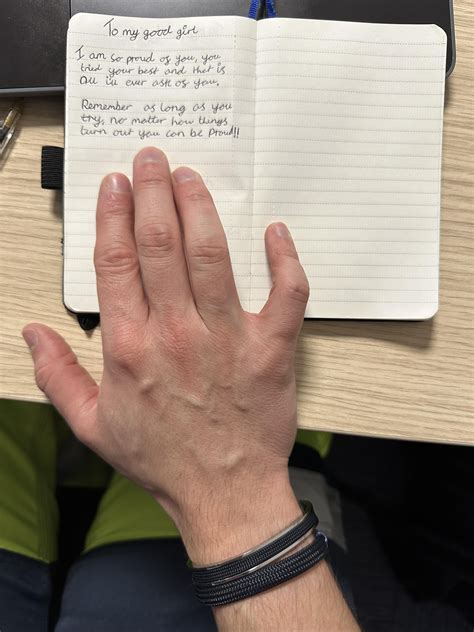 To my good girl
I am so proud of you, you
tried your best and that is
all ill ever ask of you.
Remember as long as you
try, no matter how things
turn out you can be Proud!!